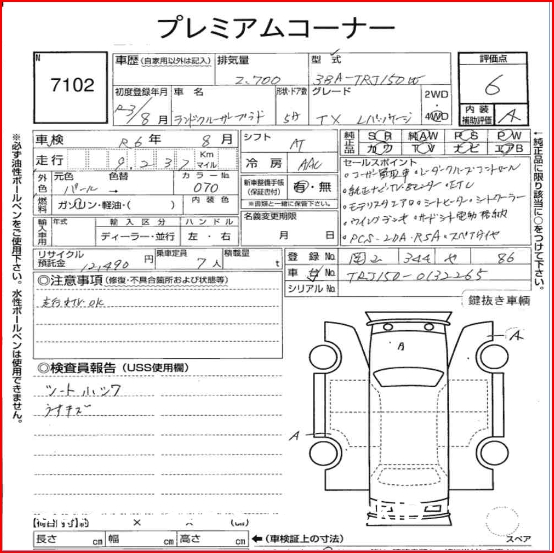 プレミアムコーナー
N
7102
車歴 (自家用以外は記入)
排気量
型式
2,700
3BA-TRJ150W
初度登録年月
車名
形状・ドア数
グレード
2WD
4WD
R3/8月
ランドクルーザープラド
5D
TX Lパッケージ
評価点
6
内装
補助評価
A
車検
R6年 8月
シフト
AT
走行
9,232
Km
マイル
冷房
AAC
外色
元色
色替
カラーNo
パール →
070
燃料
ガソリン・軽油・( )
内装色
新車整備手帳
(保証書付)
有・無
※書類と一緒に保管下さい。
輸入車用
年式
輸入区分
ハンドル
ディーラー・並行
左・右
名義変更期限
月 日
純正品
SR
AW
PS
PW
カワ
TV
ナビ
エアB
セールスポイント
・ユーザー買取車・レーダークルーズコントロール
・ETC
・モデリスタエアロ・シートヒーター・シートクーラー
・サードシート電動格納
・PCS・LDA・RSA・スペアタイヤ
リサイクル預託金
12,490円
乗車定員
7人
積載量
t
登録No
岡山 344 や 86
車台No
TRJ150-0132265
シリアルNo
◎注意事項 (修復・不具合箇所および状態等)
走行メーターOK
鍵抜き車輌
◎検査員報告 (USS使用欄)
シートハンク
うすキズ
A
A
A
長さ cm 幅 cm 高さ cm
←(車検証上の寸法)
スペア
※必ず油性ボールペンをご使用下さい。水性ボールペンは使用できません。
←純正品に限り該当に○をつけて下さい。